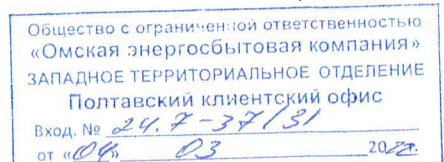 Общество с ограниченной ответственностью
«Омская энергосбытовая компания»
ЗАПАДНОЕ ТЕРРИТОРИАЛЬНОЕ ОТДЕЛЕНИЕ
Полтавский клиентский офис
Вход. № 24.7-37/31
от «04» 03 20